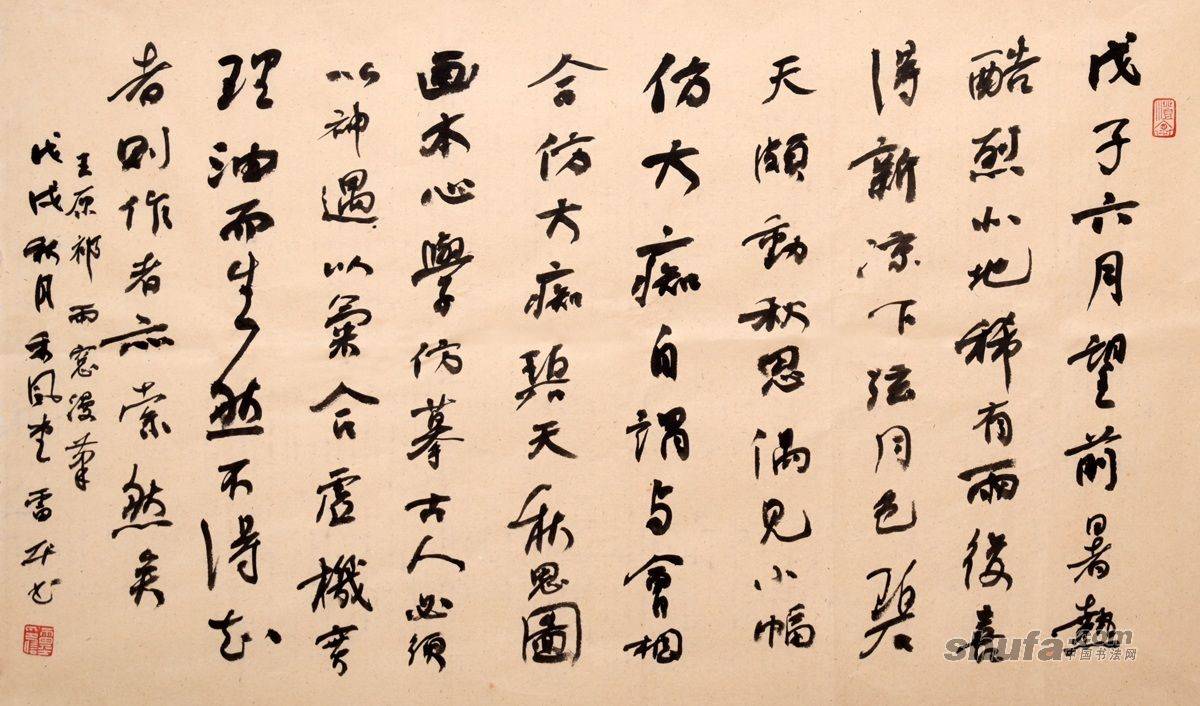 戊子六月望前暑熱
酷烈北地稀有雨後喜
得新凉下弦月色碧
天頗動秋思偶見小幅
仿大痴自謂與會相
合仿大痴碧天秋思圖
画本心學仿摹古人必須
以神遇以氣合虛機實
理油而生然不得知
者則作者亦索然矣
王原祁雨窓漫筆
戊戌秋月 風 雷 书
shufa.com
中国书法网